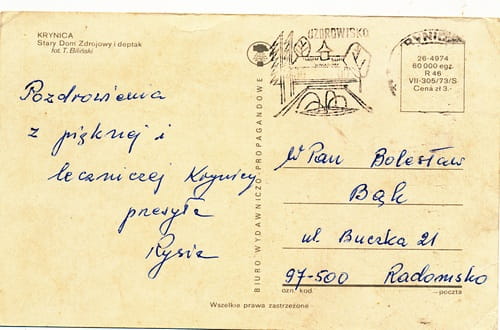 KRYNICA
Stary Dom Zdrojowy i deptak
fot. T. Biliński
Pozdrowienia
z pięknej i
leczniczej Krynicy
przesyła
Rysia
BIURO WYDAWNICZO-PROPAGANDOWE
UZDROWISKO
26-4974
60 000 egz.
R 46
VII-305/73/S
Cena zł 3.-
W Pan Bolesław
Bąk
ul. Buczka 21
97-500 Radomsko
ozn. kod
poczta
Wszelkie prawa zastrzeżone